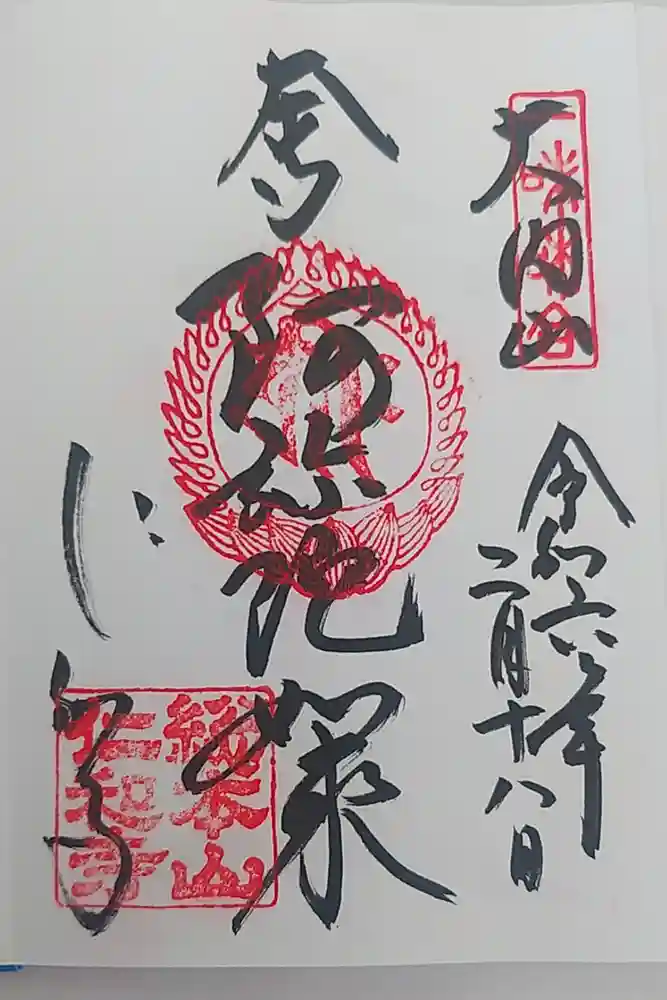 大内山
令和六年
二月十八日
阿弥陀如来
仁和寺
総本山
仁和寺